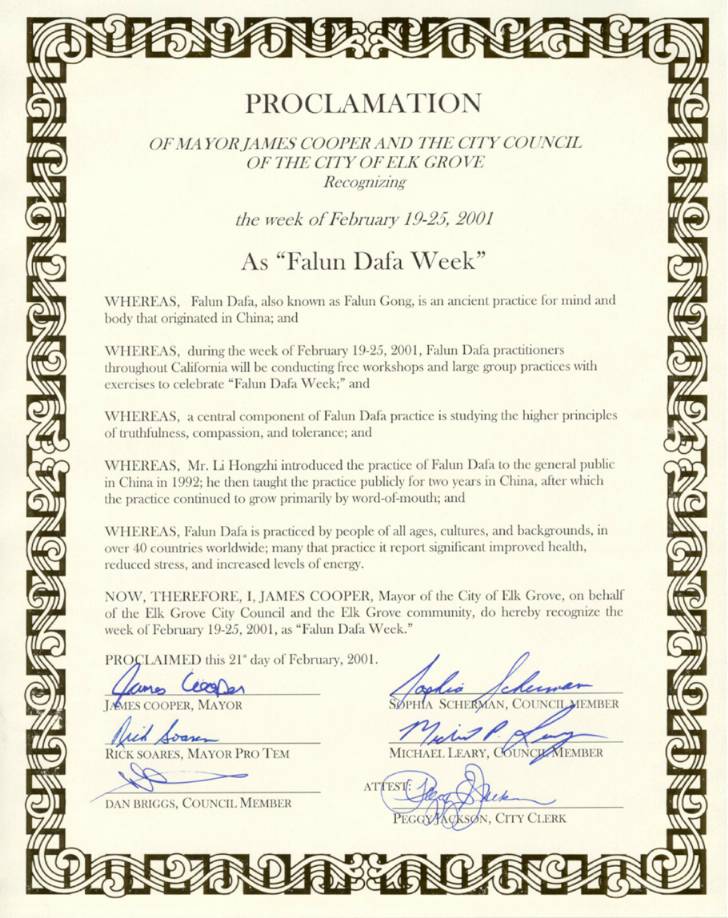 PROCLAMATION
OF MAYOR JAMES COOPER AND THE CITY COUNCIL
OF THE CITY OF ELK GROVE
Recognizing
the week of February 19-25, 2001
As “Falun Dafa Week”
WHEREAS, Falun Dafa, also known as Falun Gong, is an ancient practice for mind and
body that originated in China; and
WHEREAS, during the week of February 19-25, 2001, Falun Dafa practitioners
throughout California will be conducting free workshops and large group practices with
exercises to celebrate “Falun Dafa Week;” and
WHEREAS, a central component of Falun Dafa practice is studying the higher principles
of truthfulness, compassion, and tolerance; and
WHEREAS, Mr. Li Hongzhi introduced the practice of Falun Dafa to the general public
in China in 1992; he then taught the practice publicly for two years in China, after which
the practice continued to grow primarily by word-of-mouth; and
WHEREAS, Falun Dafa is practiced by people of all ages, cultures, and backgrounds, in
over 40 countries worldwide; many that practice it report significant improved health,
reduced stress, and increased levels of energy.
NOW, THEREFORE, I, JAMES COOPER, Mayor of the City of Elk Grove, on behalf
of the Elk Grove City Council and the Elk Grove community, do hereby recognize the
week of February 19-25, 2001, as “Falun Dafa Week.”
PROCLAIMED this 21st day of February, 2001.
James Cooper
JAMES COOPER, MAYOR
Sophia Scherman
SOPHIA SCHERMAN, COUNCIL MEMBER
Rick Soares
RICK SOARES, MAYOR PRO TEM
Michael P. Leary
MICHAEL LEARY, COUNCIL MEMBER
DAN BRIGGS, COUNCIL MEMBER
ATTEST: Peggy Jackson
PEGGY JACKSON, CITY CLERK